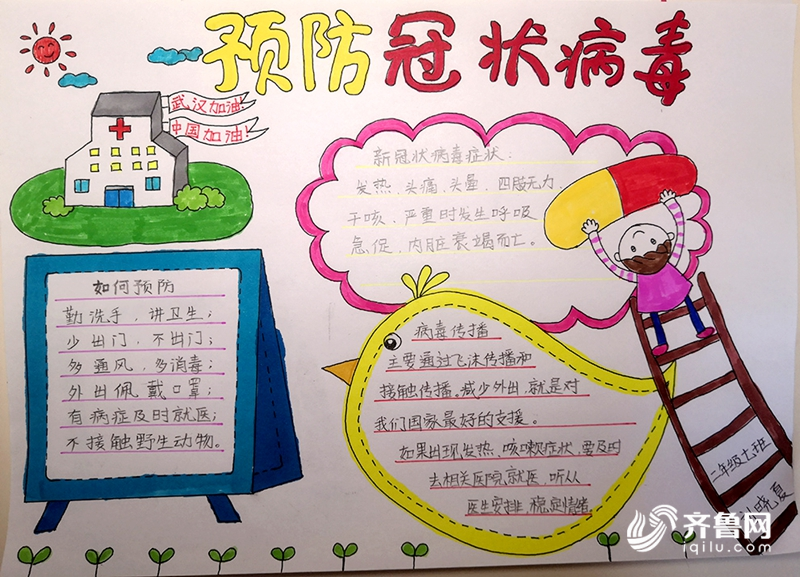 预防冠状病毒
武汉加油!
中国加油!
新冠状病毒症状:
发热、头痛、头晕、四肢无力、
干咳、严重时发生呼吸
急促、内脏衰竭而亡。
如何预防
勤洗手,讲卫生;
少出门,不出门;
多通风,多消毒;
外出佩戴口罩;
有病症及时就医;
不接触野生动物。
病毒传播
主要通过飞沫传播和
接触传播。减少外出,就是对
我们国家最好的支援。
如果出现发热、咳嗽症状,要及时
去相关医院就医,听从
医生安排,稳定情绪
二年级七班
晓夏
齐鲁网
iqilu.com